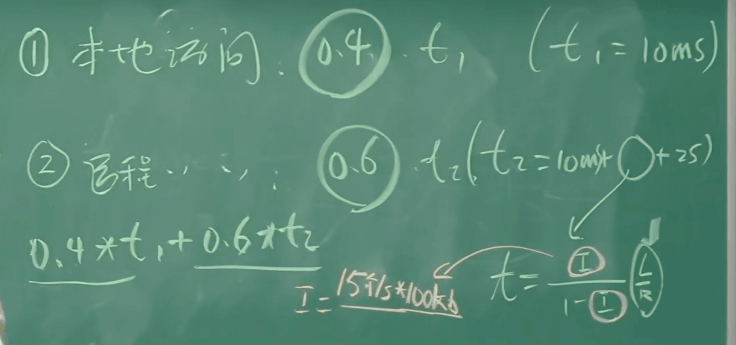 ① 本地访问: 0.4 · t₁ (t₁=10ms)
② 远程 〃 〃: 0.6 · t₂(t₂=10ms+○+2s)
0.4*t₁+0.6*t₂
I=15个/s*100kb
t=I/(1-I) L/R